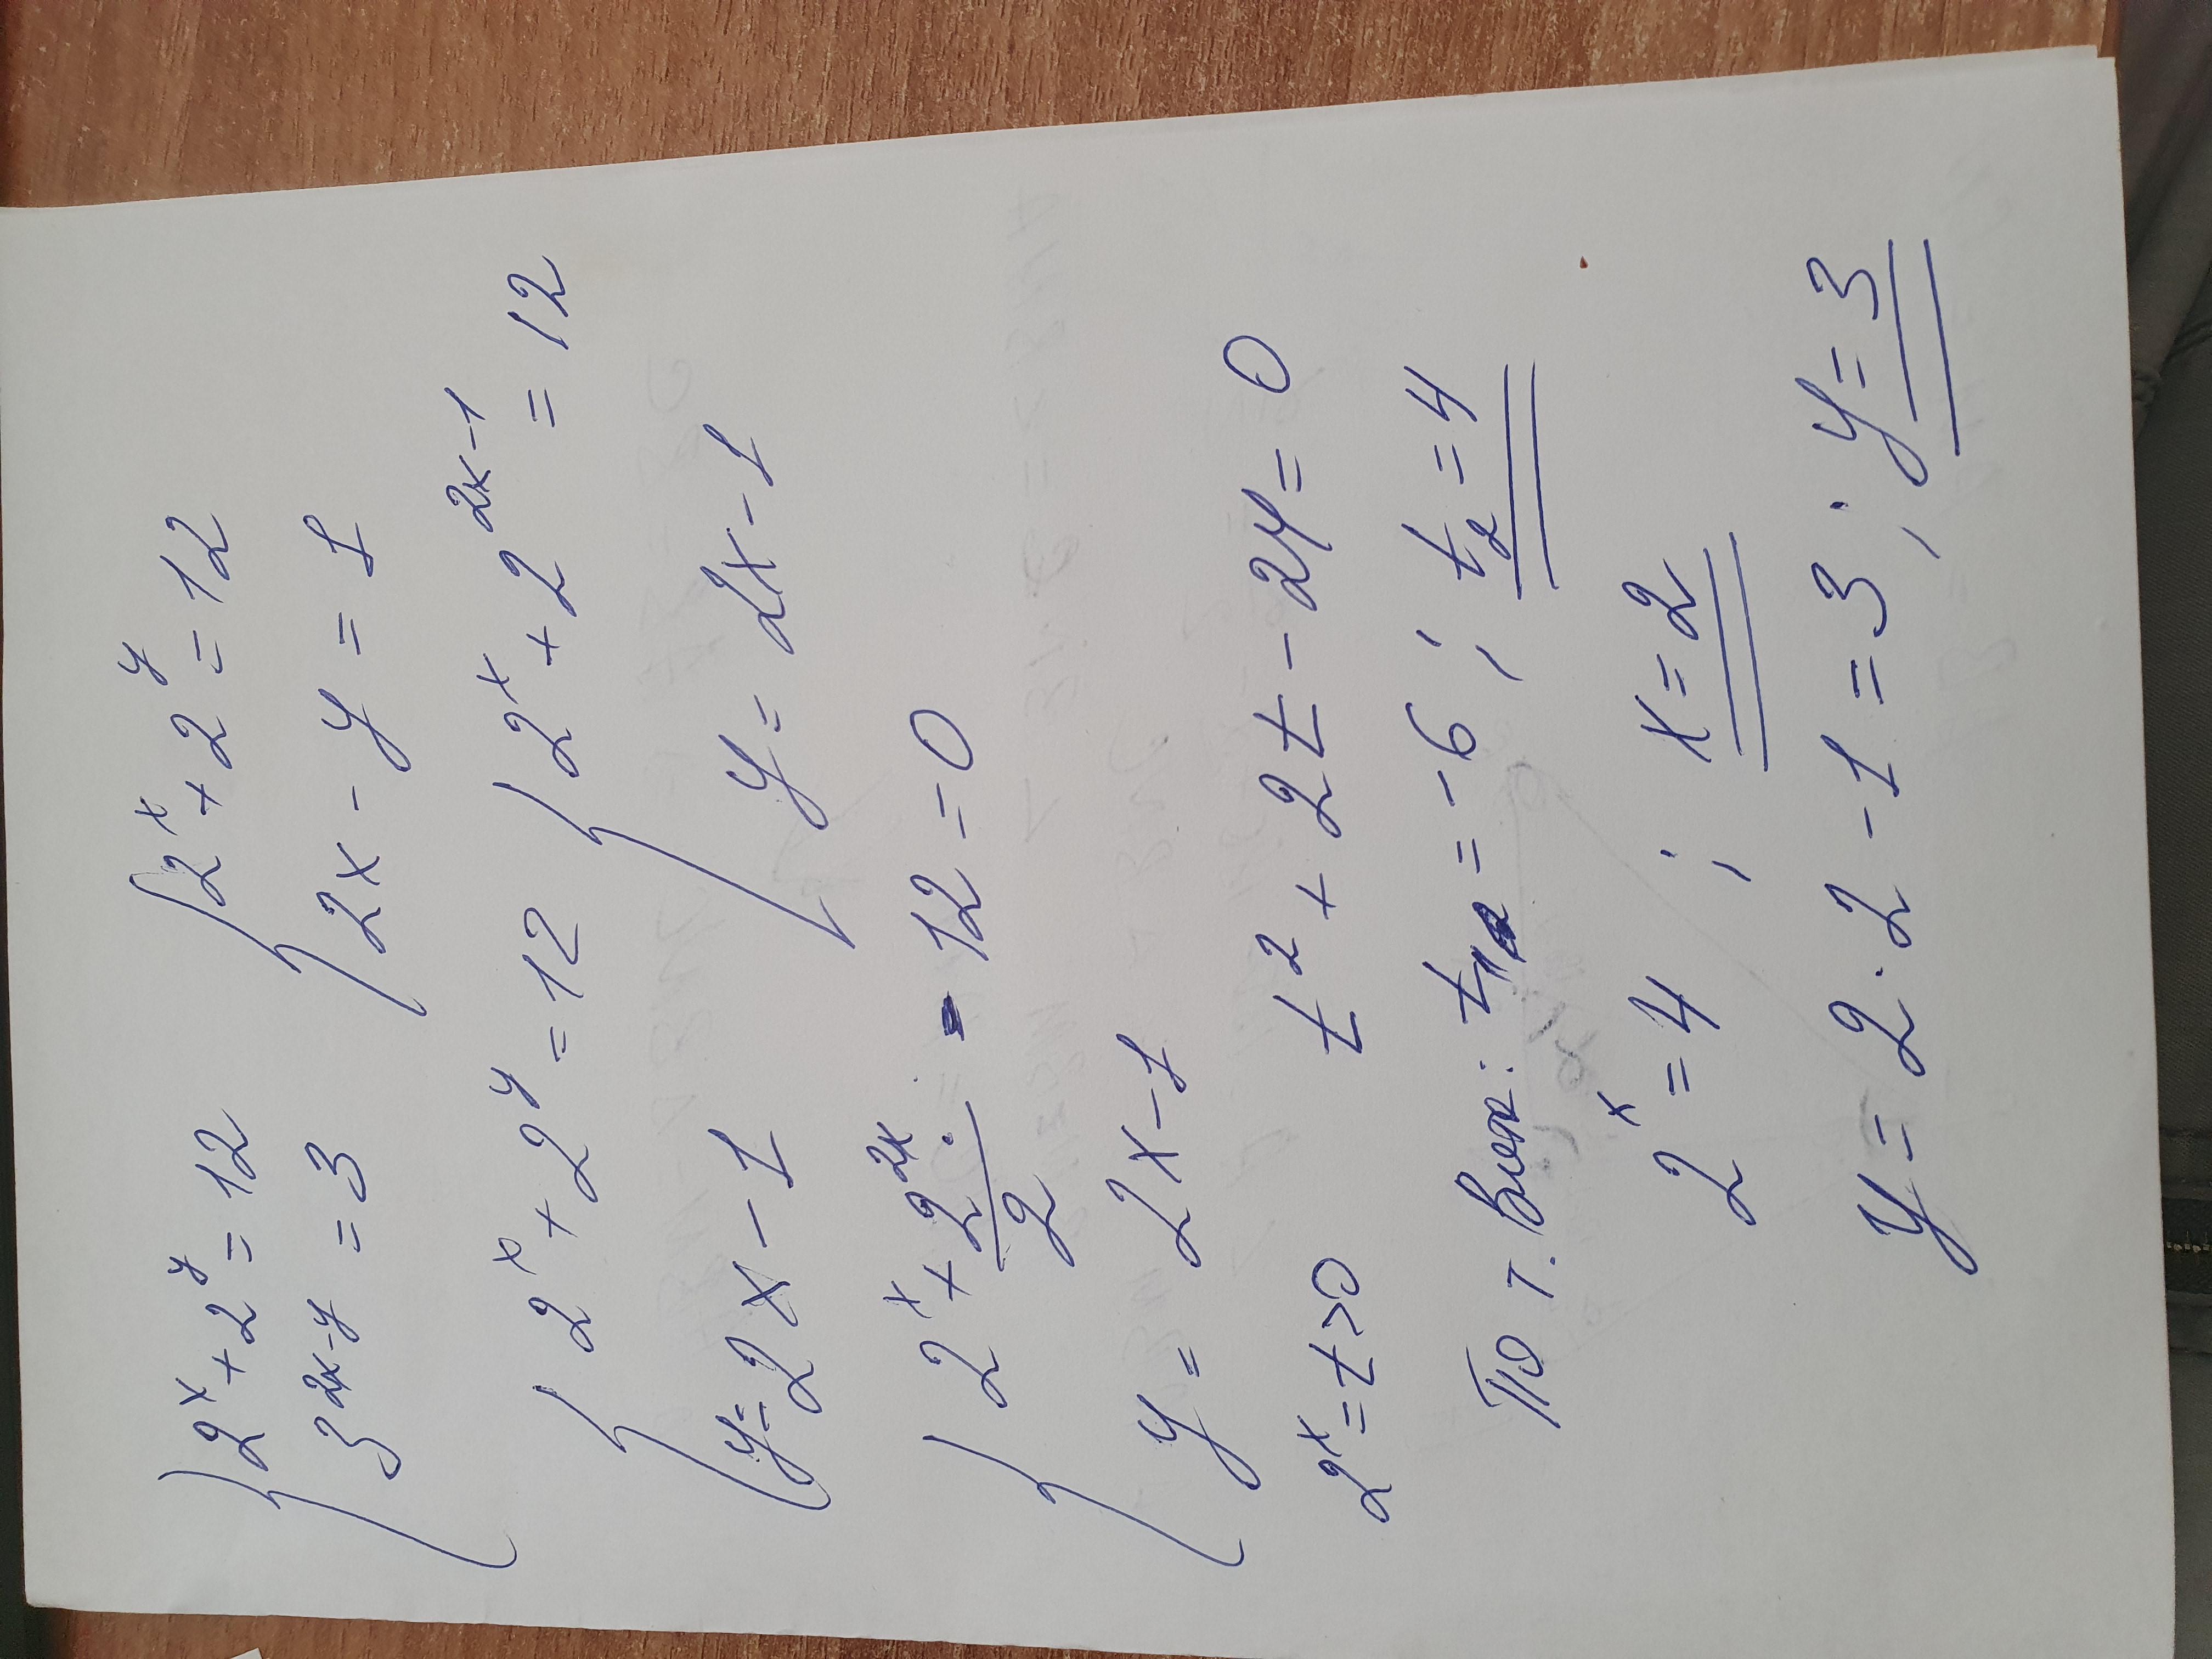 { 2^x + 2^y = 12 { 2^x + 2^y = 12
3^{2x-y} = 3 2x - y = 1
{ 2^x + 2^y = 12 { 2^x + 2^{2x-1} = 12
y = 2x - 1 y = 2x - 1
{ 2^x + 2^{2x}/2 - 12 = 0
y = 2x - 1
2^x = t > 0 t^2 + 2t - 24 = 0
По т. Виета: t_1 = -6 ; t_2 = 4
2^x = 4 ; x = 2
y = 2 · 2 - 1 = 3 ; y = 3